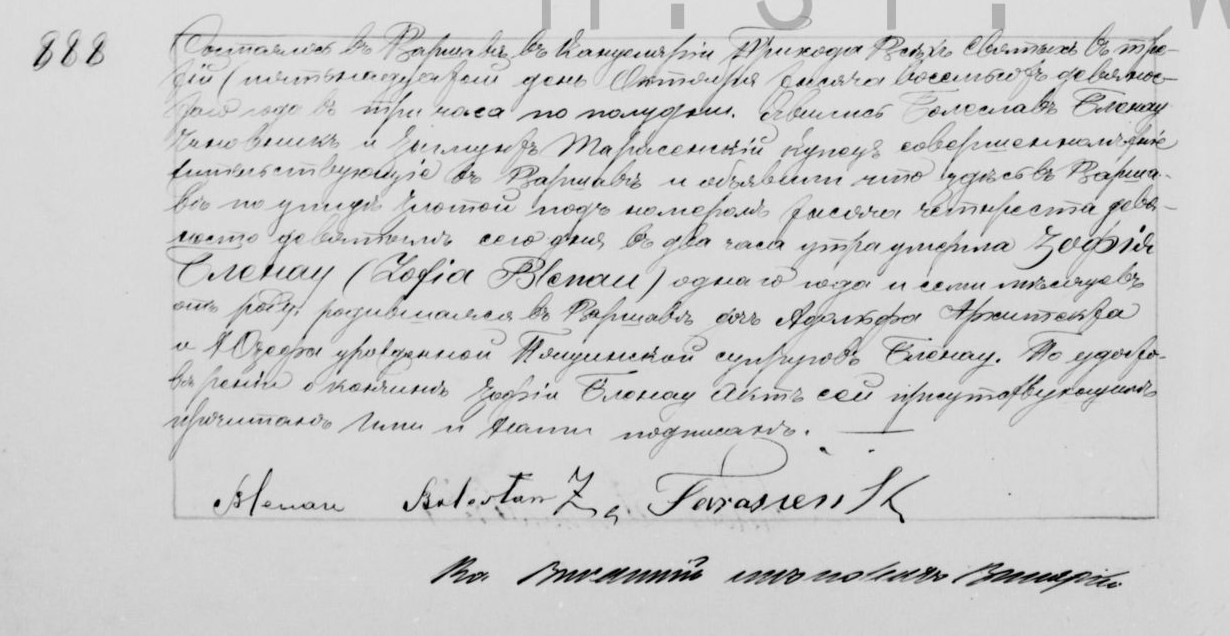 888
Состоялось въ Варшавѣ въ Канцеляріи Прихода Всѣхъ Святыхъ въ тре-
тій (пятьнадцатый день Октября тысяча восемьсотъ девянос-
таго года въ три часа по полудни. Явились Болеславъ Бленау
Чиновникъ и Зигмунтъ Тарасенскій Купецъ совершеннолѣтніе
жительствующіе въ Варшавѣ и объявили что здѣсь въ Варша-
вѣ по улицѣ Злотой подъ номеромъ тысяча четыреста девя-
носто девятымъ сего дня въ два часа утра умерла Зофія
Бленау (Zofia Blenau) одного года и семи мѣсяцевъ
отъ роду, родившаяся въ Варшавѣ дочь Адольфа Архитектора
и Юзефы урожденной супруговъ Бленау. По удосто-
вѣреніи о кончинѣ Зофіи Бленау Актъ сей присутствующимъ
прочитанъ Ими и Нами подписанъ.
Blenau
Кс. Викарій